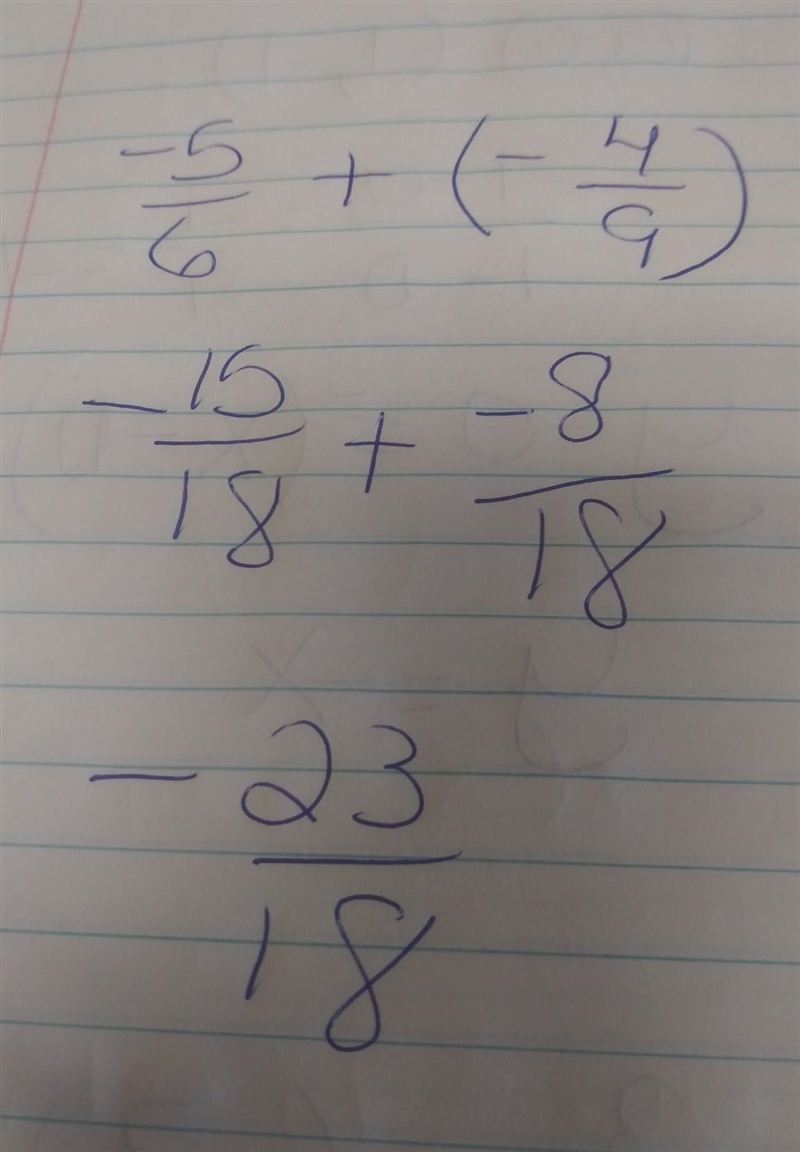 -5/6 + (- 4/9)
-15/18 + -8/18
- 23/18